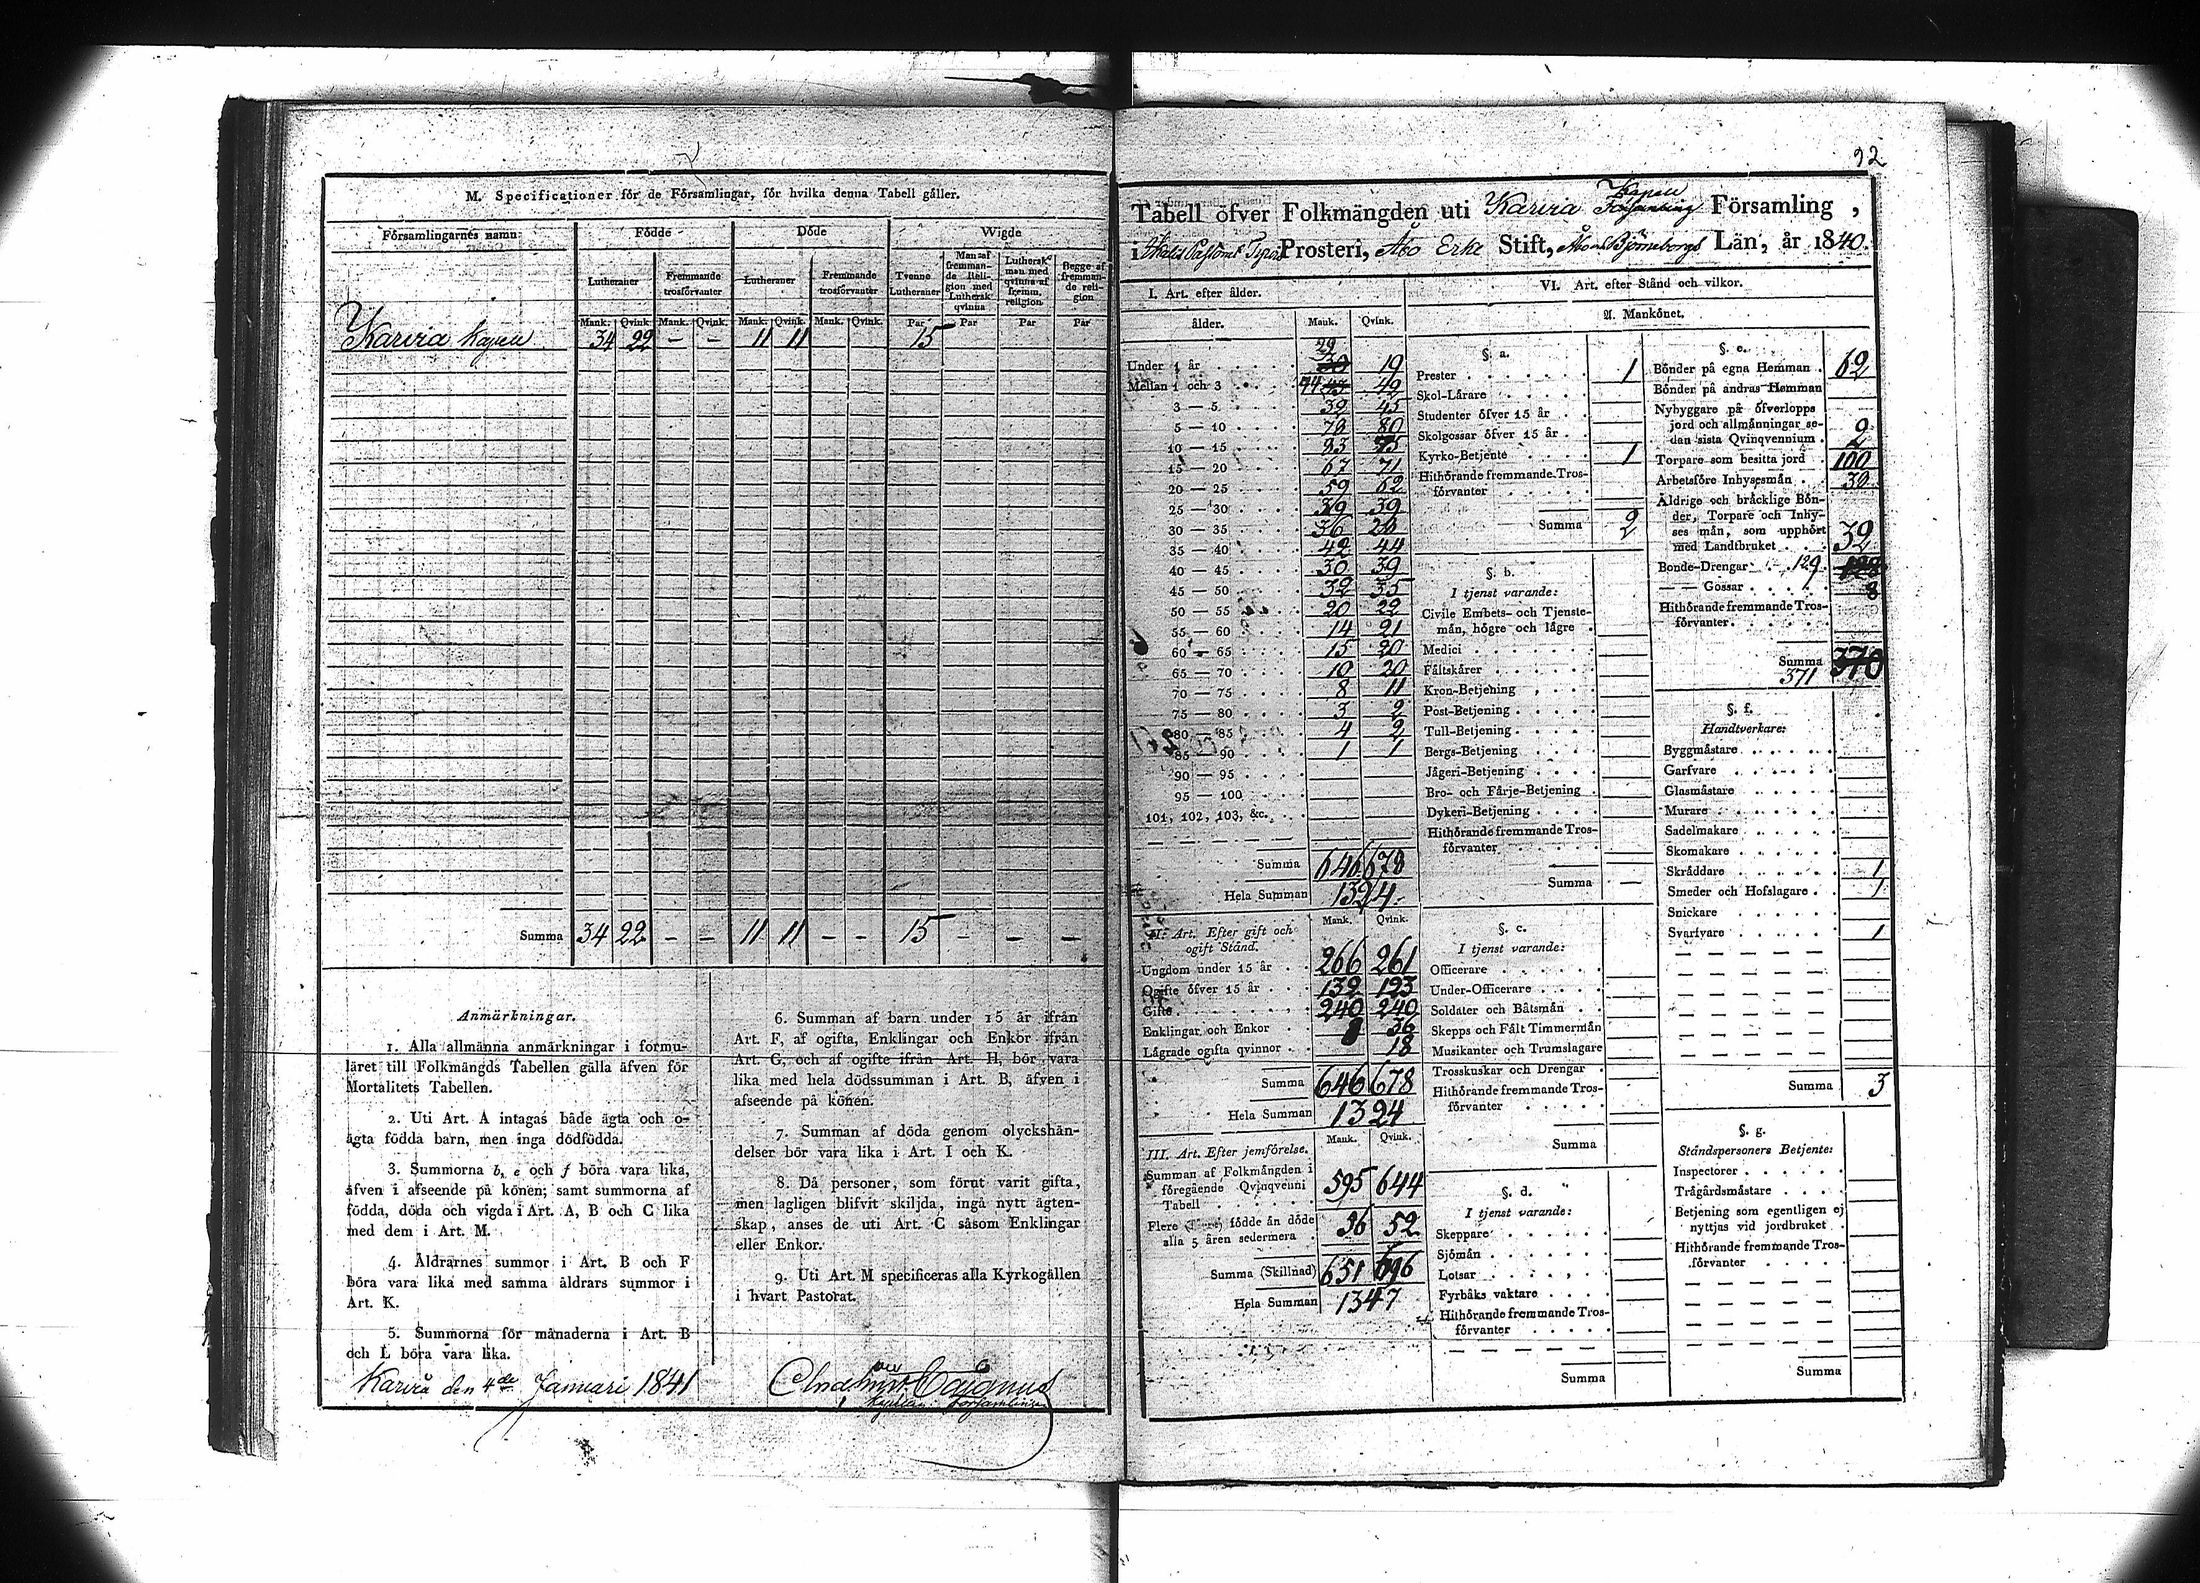 M. Specificationer för de Församlingar, för hvilka denna Tabell gäller.
Församlingarnes namn:
Födde
Döde
Wigde
Lutheraner
Fremmande trosförvanter
Lutheraner
Fremmande trosförvanter
Tvenne Lutheraner
Man af fremmande Religion med Luthersk qvinna
Luthersk man med qvinna af fremm. religion
Begge af fremmande religion
Mank. Qvink. Mank. Qvink. Mank. Qvink. Mank. Qvink. Par Par Par Par
Karvia Kapell 34 22 — — 11 11 15
Summa 34 22 — — 11 11 — — 15 — — —
Anmärkningar.
1. Alla allmänna anmärkningar i formu-
läret till Folkmängds Tabellen gälla äfven för
Mortalitets Tabellen.
2. Uti Art. A intagas både ägta och o-
ägta födda barn, men inga dödfödda.
3. Summorna b, e och f böra vara lika,
äfven i afseende på könen; samt summorna af
födda, döda och vigda i Art. A, B och C lika
med dem i Art. M.
4. Åldrarnes summor i Art. B och F
böra vara lika med samma åldrars summor i
Art. K.
5. Summorna för månaderna i Art. B
och L böra vara lika.
Karvia den 4de Januari 1841
6. Summan af barn under 15 år ifrån
Art. F, af ogifta, Enklingar och Enkor ifrån
Art. G, och af ogifte ifrån Art. H, bör vara
lika med hela dödssumman i Art. B, äfven i
afseende på könen.
7. Summan af döda genom olyckshän-
delser bör vara lika i Art. I och K.
8. Då personer, som förut varit gifta,
men lagligen blifvit skiljda, ingå nytt ägten-
skap, anses de uti Art. C såsom Enklingar
eller Enkor.
9. Uti Art. M specificeras alla Kyrkogällen
i hvart Pastorat.
92
Tabell öfver Folkmängden uti Karvia Kapell Församling,
i Prosteri, Åbo Erke Stift, Åbo och Björneborgs Län, år 1840.
I. Art. efter ålder.
ålder. Mank. Qvink.
Under 1 år 29 19
Mellan 1 och 3 44 42
3 — 5 32 45
5 — 10 80
10 — 15 75
15 — 20 67 71
20 — 25 59 62
25 — 30 39 39
30 — 35 36
35 — 40 42 44
40 — 45 30 39
45 — 50 32 35
50 — 55 20 22
55 — 60 14 21
60 — 65 15 20
65 — 70 10 20
70 — 75 8 11
75 — 80 3 2
80 — 85 4 2
85 — 90 1 1
90 — 95
95 — 100
101, 102, 103, &c.
Summa 646 678
Hela Summan 1324
Mank. Qvink.
II. Art. Efter gift och
ogift Stånd.
Ungdom under 15 år 266 261
Ogifte öfver 15 år 139 123
Gifte 240 240
Enklingar och Enkor 36
Lägrade ogifta qvinnor 18
Summa 646 678
Hela Summan 1324
Mank. Qvink.
III. Art. Efter jemförelse.
Summan af Folkmängden i
föregående Qvinqvenni
Tabell 595 644
Flere födde än döde
alla 5 åren sedermera 56 52
Summa (Skillnad) 651 696
Hela Summan 1347
VI. Art. efter Stånd och vilkor.
A. Mankönet.
§. a.
Prester 1
Skol-Lärare
Studenter öfver 15 år
Skolgossar öfver 15 år
Kyrko-Betjente 1
Hithörande fremmande Tros-
förvanter
Summa 2
§. b.
I tjenst varande:
Civile Embets- och Tjenste-
män, högre och lägre
Medici
Fältskärer
Kron-Betjening
Post-Betjening
Tull-Betjening
Bergs-Betjening
Jägeri-Betjening
Bro- och Färje-Betjening
Dykeri-Betjening
Hithörande fremmande Tros-
förvanter
Summa —
§. c.
I tjenst varande:
Officerare
Under-Officerare
Soldater och Båtsmän
Skepps och Fält Timmermän
Musikanter och Trumslagare
Trosskuskar och Drengar
Hithörande fremmande Tros-
förvanter
Summa
§. d.
I tjenst varande:
Skeppare
Sjömän
Lotsar
Fyrbåks vaktare
Hithörande fremmande Tros-
förvanter
Summa
§. e.
Bönder på egna Hemman 62
Bönder på andras Hemman
Nybyggare på öfverlopps
jord och allmänningar se-
dan sista Qvinqvennium 2
Torpare som besitta jord 100
Arbetsföre Inhysesmän
Åldrige och bräcklige Bön-
der, Torpare och Inhy-
ses män, som upphört
med Landtbruket 32
Bonde-Drengar 129
— — Gossar 8
Hithörande fremmande Tros-
förvanter
Summa 370
371
§. f.
Handtverkare:
Byggmästare
Garfvare
Glasmästare
Murare
Sadelmakare
Skomakare
Skräddare 1
Smeder och Hofslagare 1
Snickare
Svarfvare 1
Summa 3
§. g.
Ståndspersoners Betjente:
Inspectorer
Trägårdsmästare
Betjening som egentligen ej
nyttjas vid jordbruket
Hithörande fremmande Tros-
förvanter
Summa